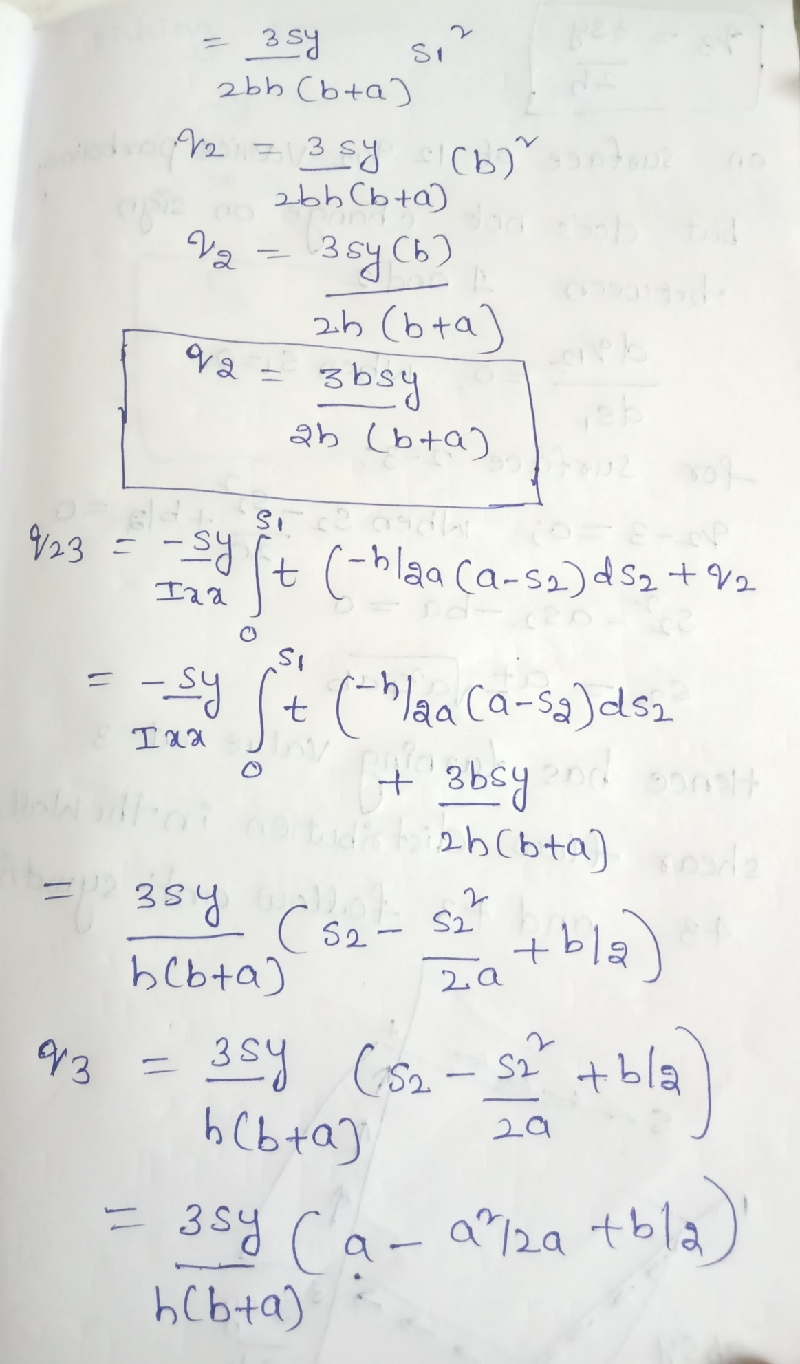 = 3sy / 2bh (b+a) s₁²
q2 = 3sy / 2bh (b+a) (b)²
q2 = 3sy(b) / 2h (b+a)
q2 = 3bsy / 2h (b+a)
q23 = -sy / Ixx ∫₀^s₁ t (-h/2a (a-s2) ds2 + q2
= -sy / Ixx ∫₀^s₁ t (-h/2a (a-s2) ds2
+ 3bsy / 2h (b+a)
= 3sy / h(b+a) (s2 - s2² / 2a + b/2)
q3 = 3sy / h(b+a) (s2 - s2² / 2a + b/2)
= 3sy / h(b+a) (a - a²/2a + b/2)